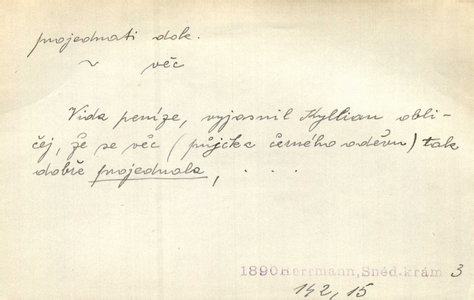 projednati dok.
~ věc
Vida peníze, vyjasnil Kyllian obli-
čej, že se věc (půjčka černého oděvu) tak
dobře projednala, . . . .
1890 Herrmann, Sněd. krám 3
142, 15